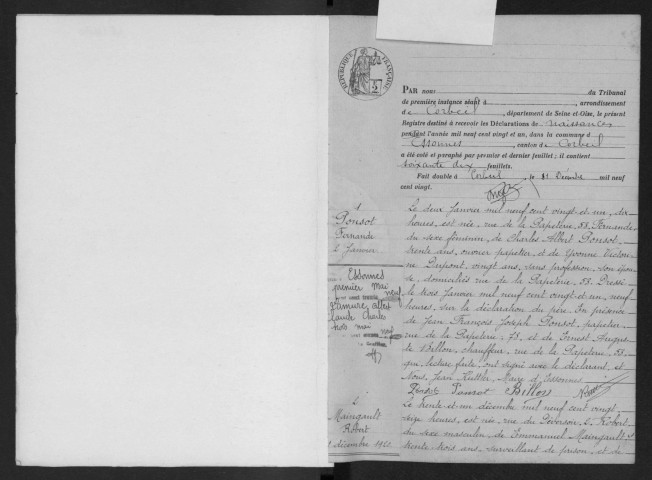 RÉPUBLIQUE FRANÇAISE
2
PAR nous du Tribunal
de première instance séant à , arrondissement
de Corbeil , département de Seine et Oise, le présent
Registre destiné à recevoir les Déclarations de naissances
pendant l'année mil neuf cent vingt et un, dans la commune d
Essonnes , canton de Corbeil
a été coté et paraphé par premier et dernier feuillet; il contient
soixante dix feuillets.
Fait double à Corbeil , le 31 Décembre mil neuf
cent vingt.
1
Ponsot
Fernande
2 Janvier
Essonnes
premier mai
neuf
cent trente
Claude Charles
trois mai
neuf
Le deux Janvier mil neuf cent vingt et un, dix
heures, est née, rue de la Papeterie, 53, Fernande
du sexe féminin, de Charles Albert Ponsot
trente ans, ouvrier papetier, et de Yvonne Victori-
ne Dupont, vingt ans, sans profession, son épou-
se, domiciliés rue de la Papeterie, 53. Dressé
le trois Janvier mil neuf cent vingt et un, neuf
heures, sur la déclaration du père. En présence
de Jean François Joseph Ponsot, papetier,
rue de la Papeterie, 73, et de Ernest Augus-
te Billon, chauffeur, rue de la Papeterie, 53
qui, lecture faite, ont signé avec le déclarant, et
Nous, Jean , Maire d'Essonnes
Ponsot Ponsot Billon
2
Maingault
Robert
31 décembre 1920
Le trente et un décembre mil neuf cent vingt
seize heures, est née, rue du Déversoir, 2, Robert
du sexe masculin, de Emmanuel Maingault
trente trois ans, surveillant de prison, et de